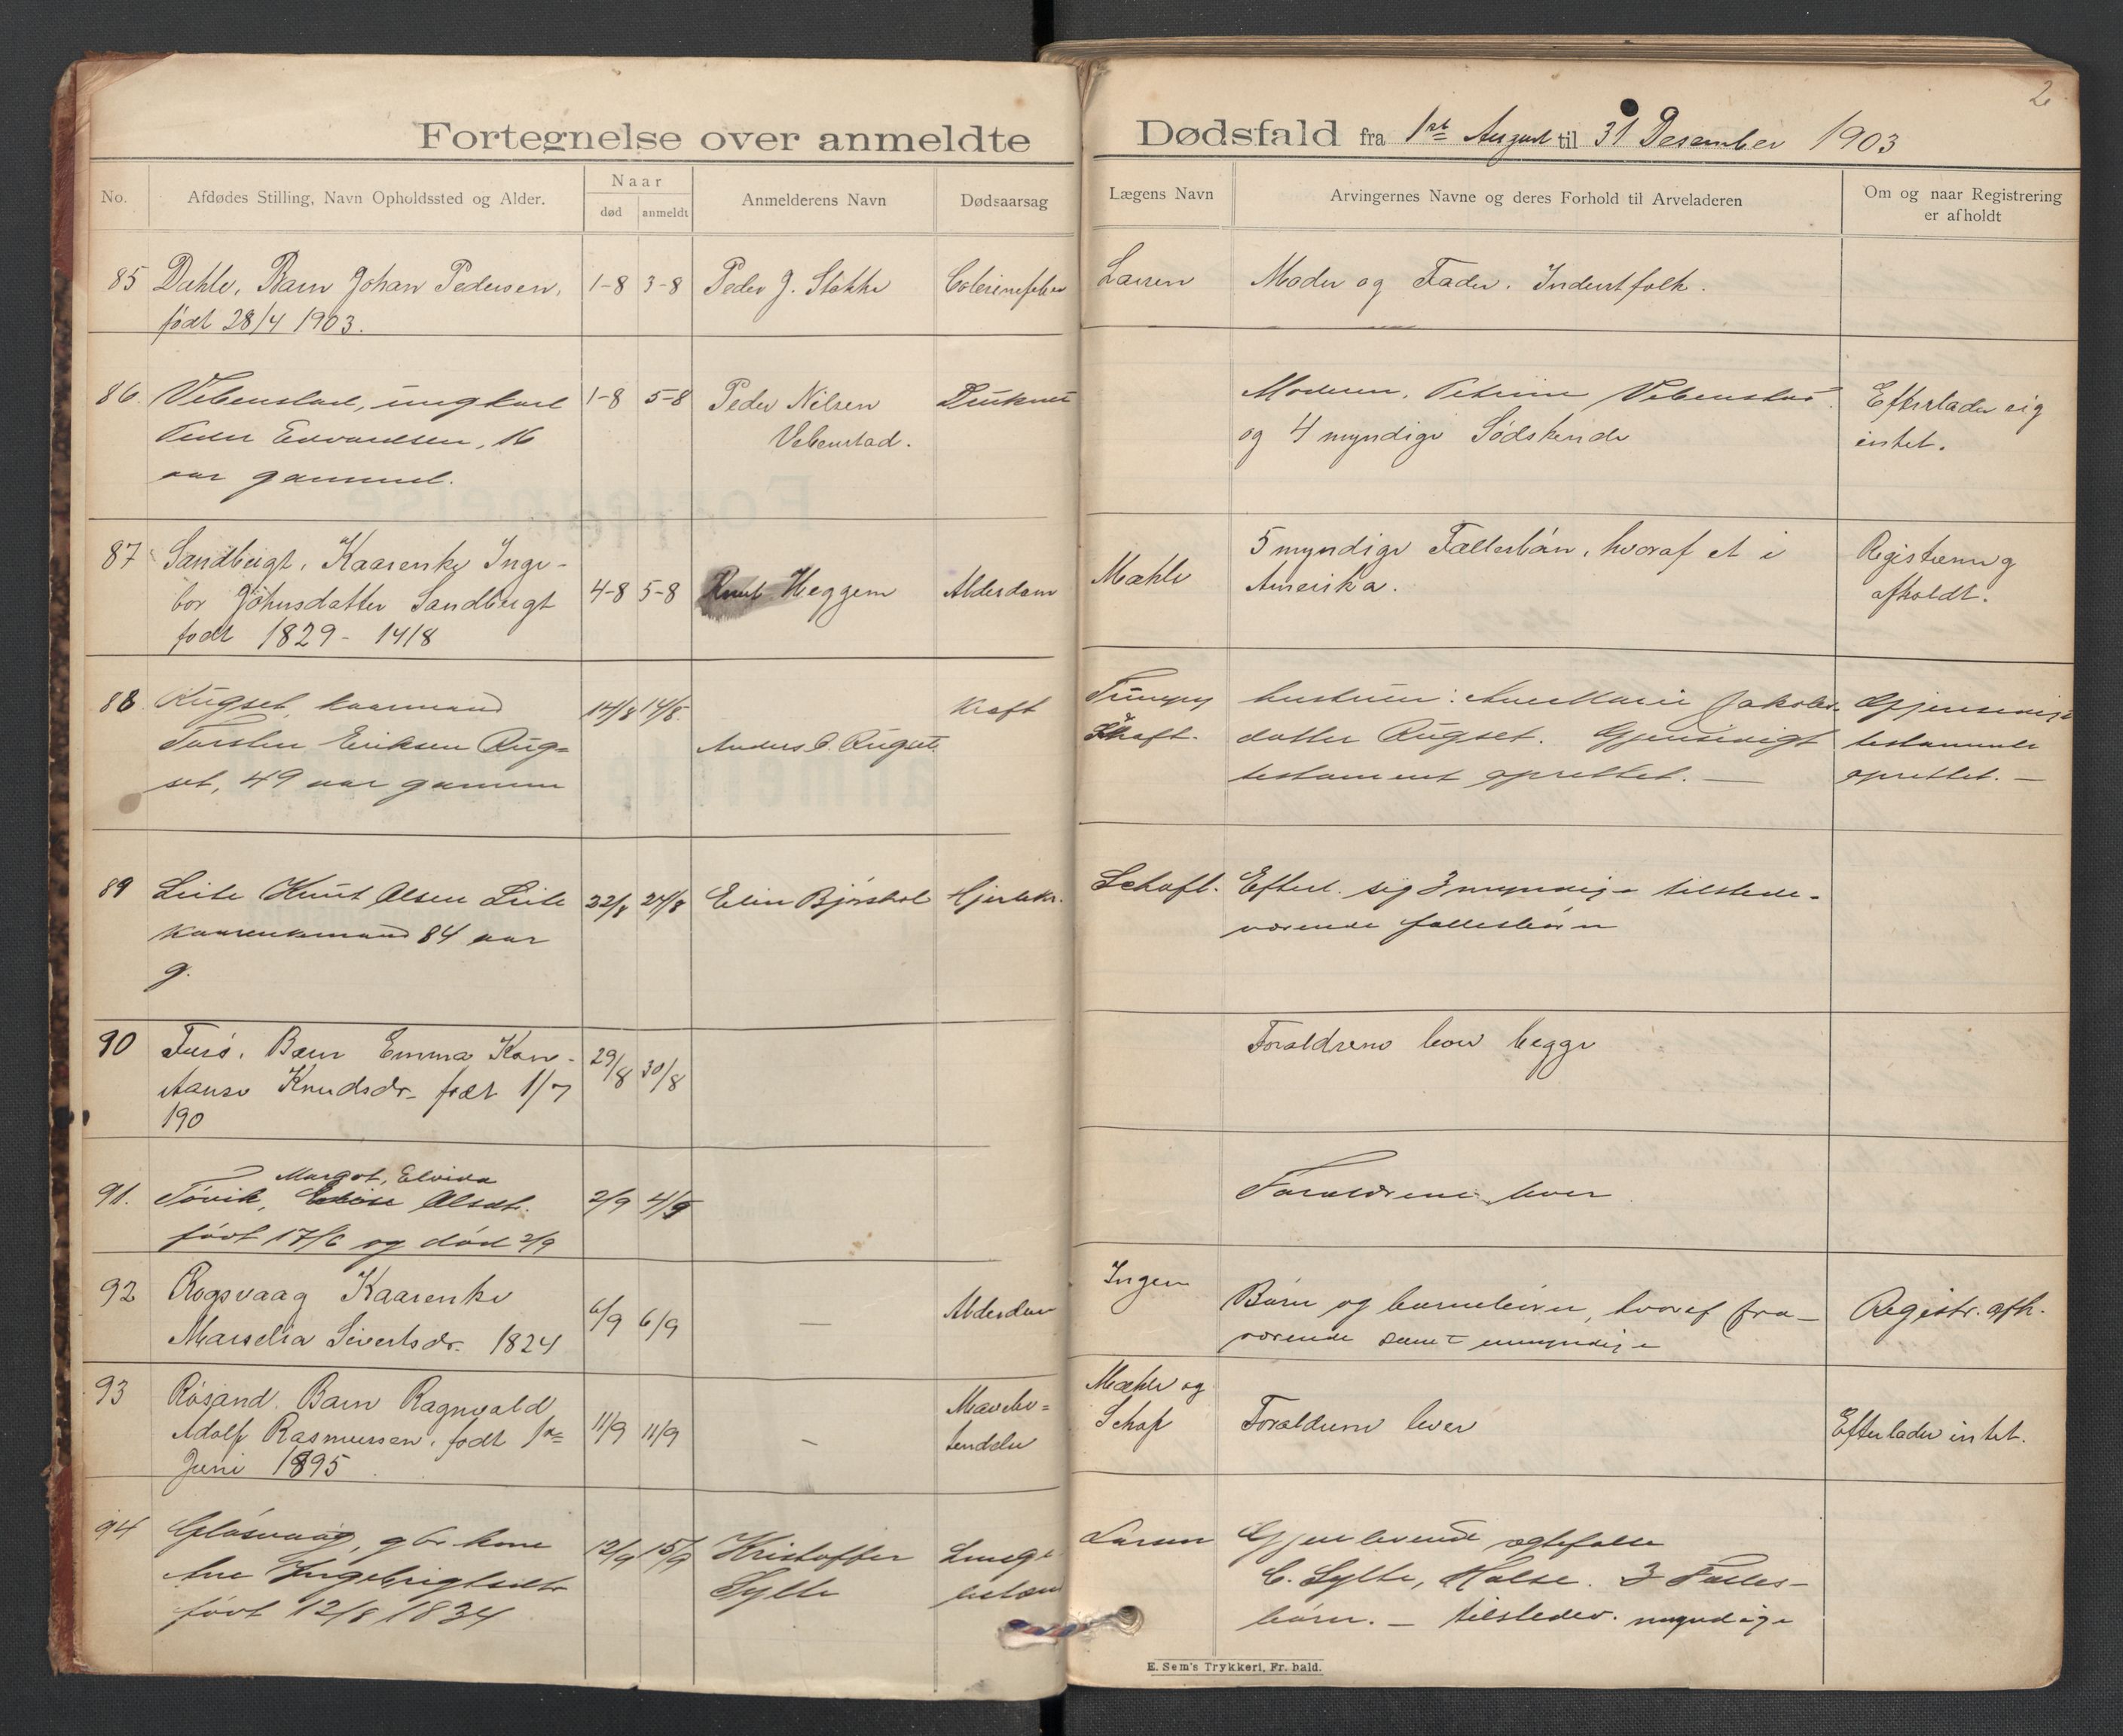 2
Fortegnelse over anmeldte Dødsfald fra 1st August til 31 Desember 1903
No. Afdødes Stilling, Navn Opholdssted og Alder. Naar død anmeldt Anmelderens Navn Dødsaarsag Lægens Navn Arvingernes Navne og deres Forhold til Arveladeren Om og naar Registrering er afholdt
85 Dahle, Barn Johan Pedersen, 1-8 3-8 Peder J. Stokke Larsen Moder og Fader. Inderstfolk.
født 28/4 1903.
86. Vebenstad, ungkarl 1-8 5-8 Peder Nilsen Druknet Moderen, Petrine Vebenstad Efterlader sig
Peder Edvardsen, 16 Vebenstad. og 4 myndige Södskende intet.
aar gammel.
87 Sandbugt, Kaarenke Inge- 4-8 5-8 Knut Heggem Alderdom Mæhle 5 myndige Fællesbörn, hvoraf et i Registrering
bor Johnsdatter Sandbugt Amerika. afholdt.
født 1829 - 14/8
88. Rugset, kaarmand 14/8 14/8 Anders O. Rugset Kræft hustruen: Ane Marie Jakobs- Gjensidigt
Torsten Eriksen Rug= Schaft. datter Rugset. Gjensidigt testamente
set, 49 aar gammel testament oprettet. — oprettet. —
89 Leite Knut Olsen Leite 22/8 24/8 Elin Bjørshol Hjertekr. Schaft. Efterl. sig 3 myndige tilstede-
kaarenkemand 84 aar værende fællesbörn
g.
90 Barn Emma Kon- 29/8 30/8 Forældrene lever begge
stanse Knudsdr. født 1/7
190
Margot, Elvida
91. Tövik, Olsdt. 2/9 4/9 Forældrene lever
född 17/6 og död 2/9
92 Rogsvaag Kaarenke 6/9 6/9 — Alderdom Ingen Börn og barnebörn, hvoraf fra- Registr. afh.
Marselia Sivertsdr. 1824 værende samt umyndige
93 Rösand. Barn Ragnvald 11/9 11/9 — Mavebe= Mæhle og Forældrene lever Efterlader intet.
Adolf Rasmussen, født 1ste tendelse Schaf
Juni 1895
94 Glåsvaag, gbr. kone 12/9 15/9 Kristoffer Lunge Larsen Gjenlevende ægtefælle
Ane Ingebrigtsdtr Sylte betæn C. Sylte, Halse. 3 Fælles-
född 12/8 1834 börn. — tilstedev. myndige
E. Sem's Trykkeri, Fr. hald.